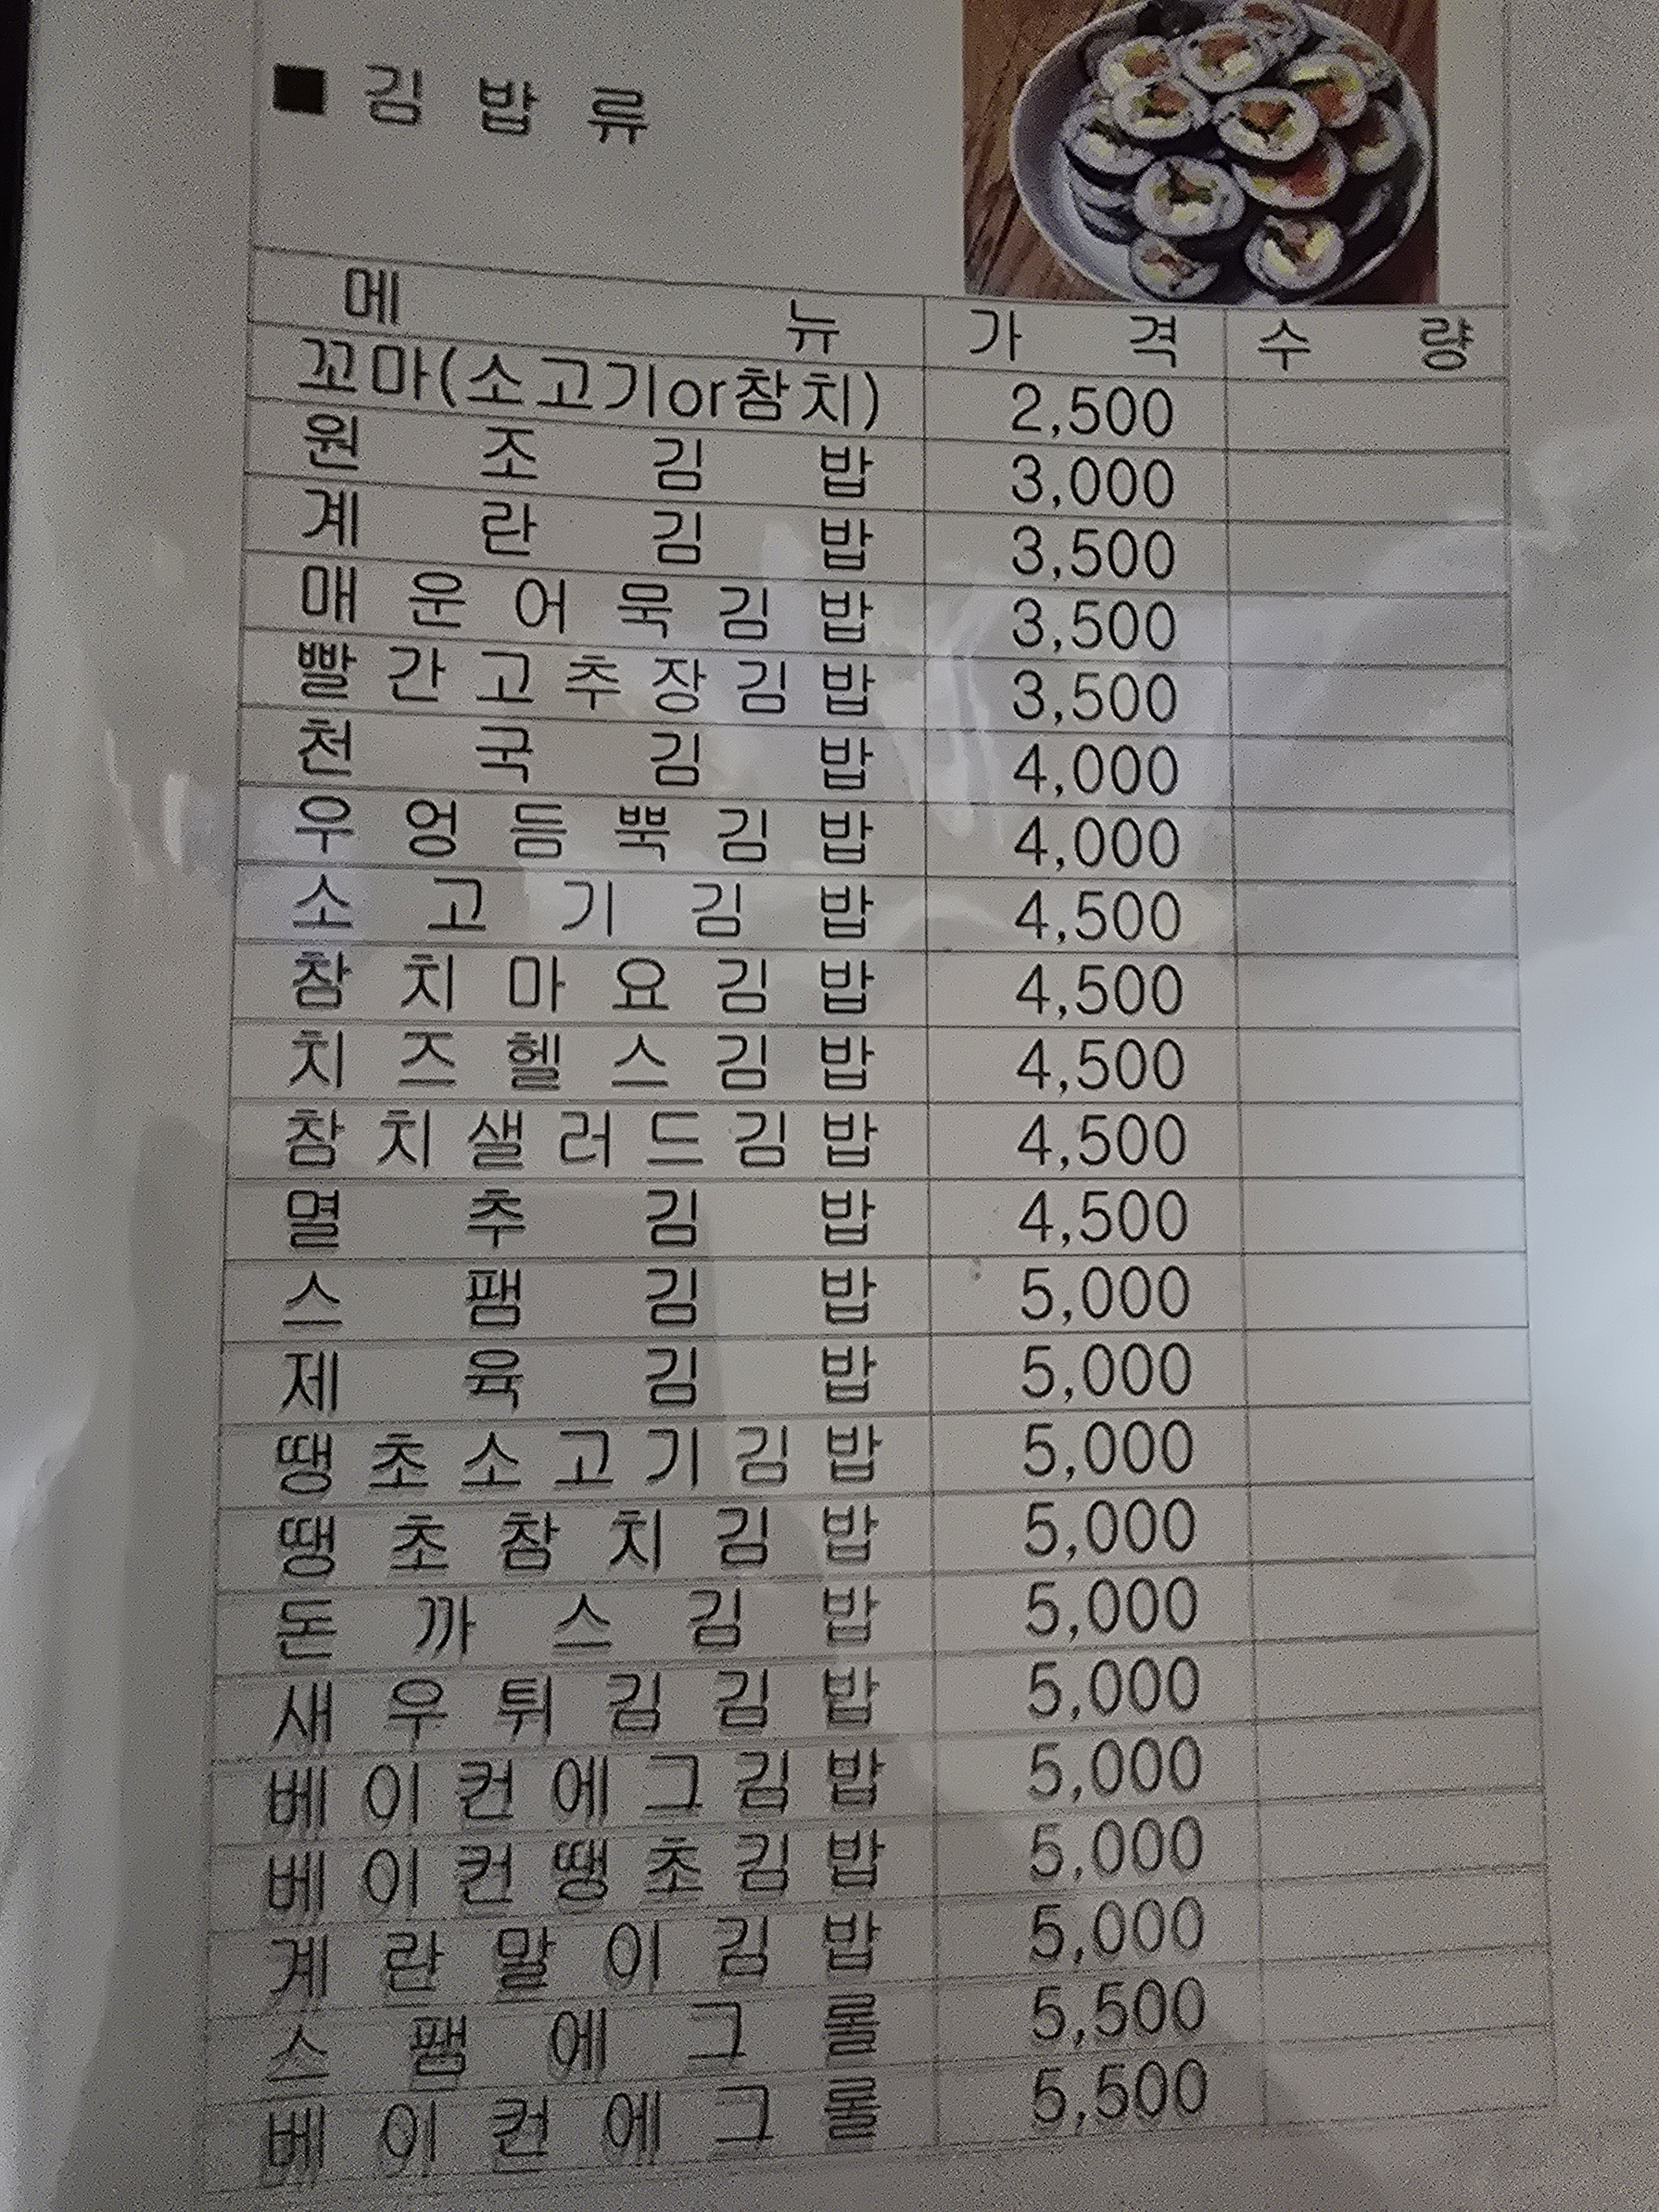 ■ 김 밥 류
메 뉴 가 격 수 량
꼬마(소고기or참치) 2,500
원 조 김 밥 3,000
계 란 김 밥 3,500
매 운 어 묵 김 밥 3,500
빨 간 고 추 장 김 밥 3,500
천 국 김 밥 4,000
우 엉 듬 뿍 김 밥 4,000
소 고 기 김 밥 4,500
참 치 마 요 김 밥 4,500
치 즈 헬 스 김 밥 4,500
참 치 샐 러 드 김 밥 4,500
멸 추 김 밥 4,500
스 팸 김 밥 5,000
제 육 김 밥 5,000
땡 초 소 고 기 김 밥 5,000
땡 초 참 치 김 밥 5,000
돈 까 스 김 밥 5,000
새 우 튀 김 김 밥 5,000
베 이 컨 에 그 김 밥 5,000
베 이 컨 땡 초 김 밥 5,000
계 란 말 이 김 밥 5,000
스 팸 에 그 롤 5,500
베 이 컨 에 그 롤 5,500